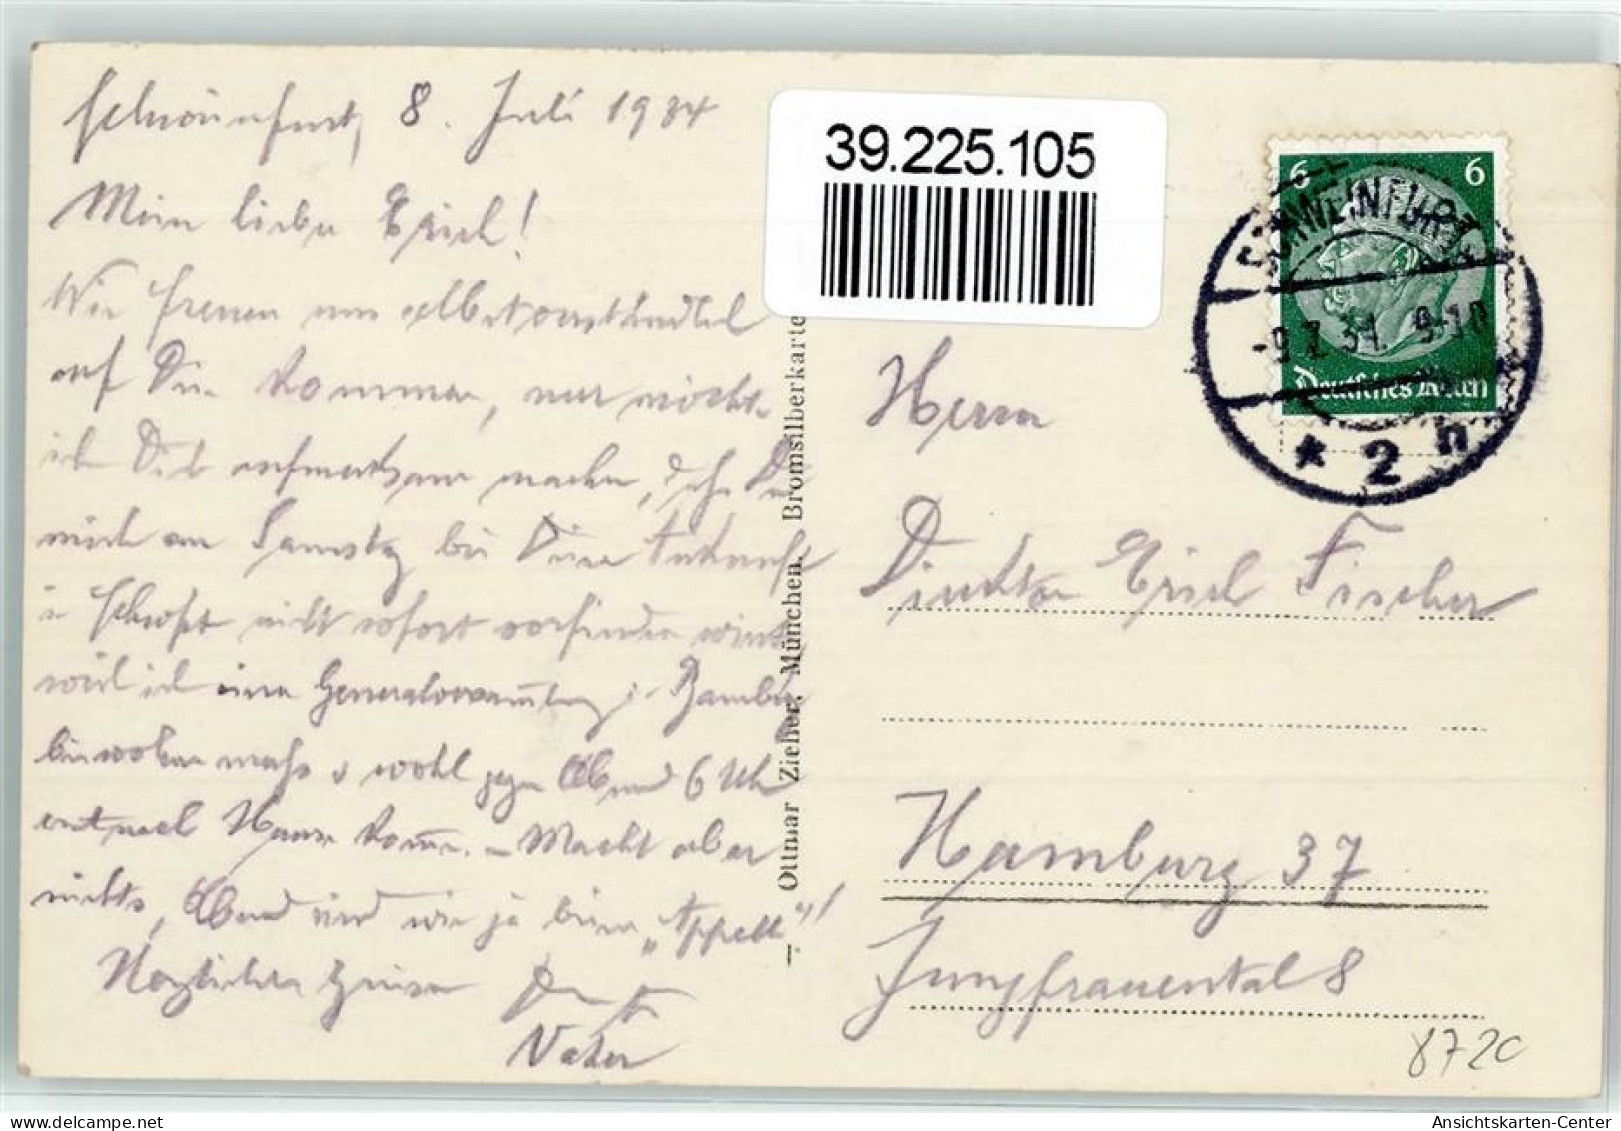 Schweinfurt, 8. Juli 1934
Mein lieber Erich!
Wir freuen uns selbstverständlich
auf Dein Kommen, nur möchte
ich Dich aufmerksam machen, daß Du
mich am Samstag bei Deiner Ankunft
nicht sofort vorfinden wirst,
weil ich eine Generalversammlung i. Bamberg
beiwohnen muß u wohl gegen Abend 6 Uhr
erst nach Hause komme. – Macht aber
nichts, Abend sind wir ja beim „Appell"!
Herzlichste Grüsse Dein
Vater
39.225.105
Ottmar Zieher, München. Bromsilberkarte
6 6
Deutsches Reich
SCHWEINFURT
-9.7.34. 9-10
* 2 h
Herrn
Direktor Erich Fischer
Hamburg 37
Jungfrauental 8
8720
AnsichtskartenCenter